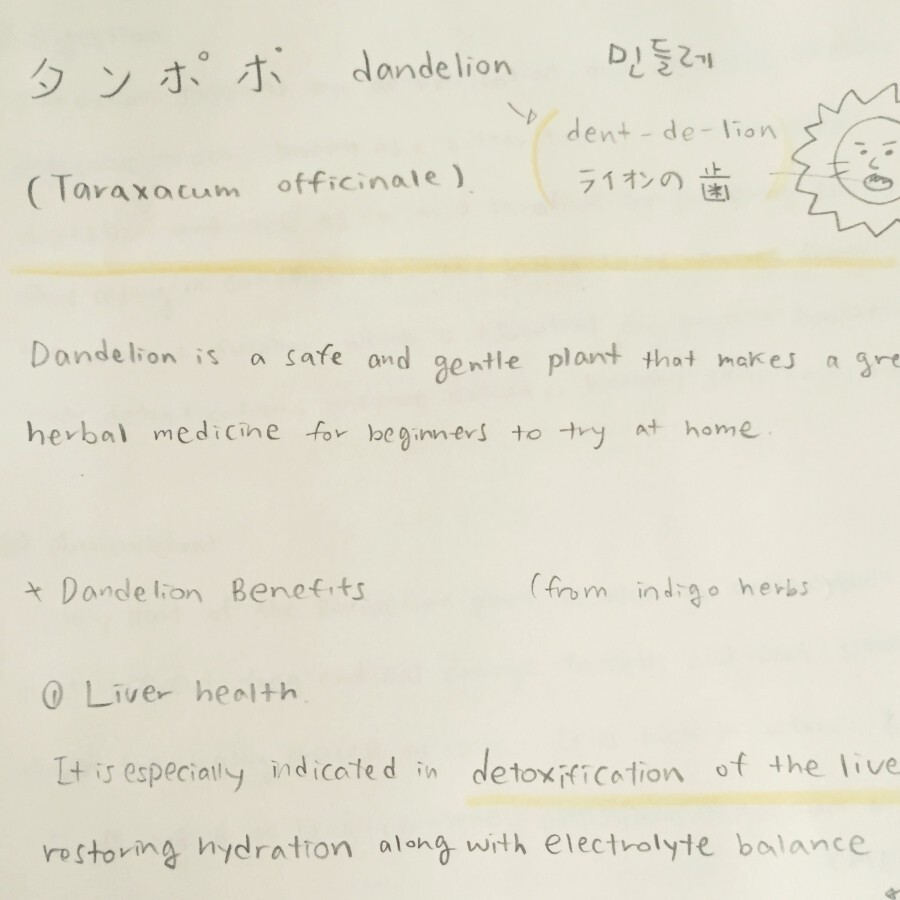 タンポポ dandelion 민들레
dent-de-lion
(Taraxacum officinale). ライオンの歯
Dandelion is a safe and gentle plant that makes a gre
herbal medicine for beginners to try at home.
* Dandelion Benefits (from indigo herbs
① Liver health.
It is especially indicated in detoxification of the live
restoring hydration along with electrolyte balance